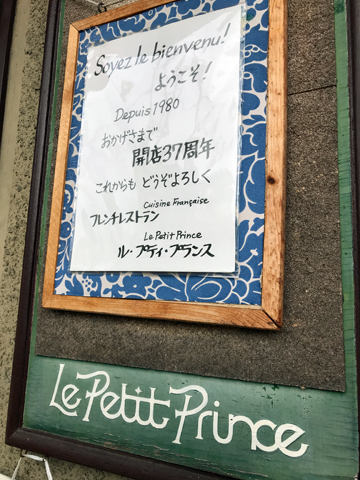 Soyez le bienvenu!
ようこそ!
Depuis 1980
おかげさまで
開店37周年
これからも どうぞよろしく
Cuisine Française
フレンチレストラン
Le Petit Prince
ル・プティ・プランス
Le Petit Prince